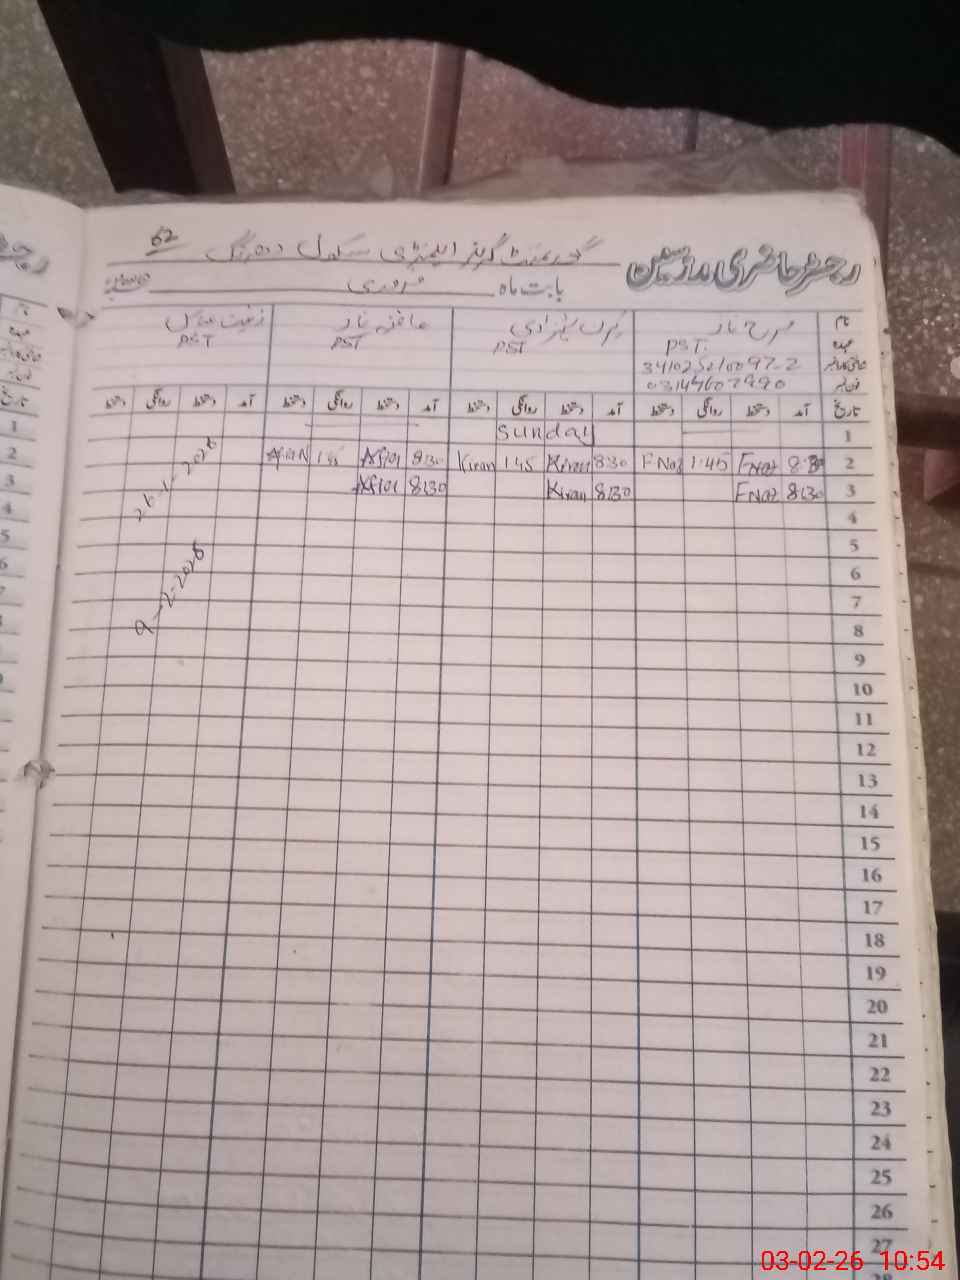 62 گورنمنٹ گرلز ایلیمنٹری سکول
رجسٹر حاضری مدرسین
بابت ماہ فروری
نام فرح ناز
PST.
PST
PST
PST
عہدہ
03144607990
تاریخ آمد دستخط روانگی دستخط آمد دستخط روانگی دستخط آمد دستخط روانگی دستخط آمد دستخط روانگی دستخط
1 Sunday
2 8:30 FNaz 1:45 FNaz 8:30 Kiran 1:45 Kiran 8:30 1:45
3 8:30 FNaz 8:30 Kiran 8:30
26-1-2026
9-2-2026
4
5
6
7
8
9
10
11
12
13
14
15
16
17
18
19
20
21
22
23
24
25
26
27
03-02-26 10:54